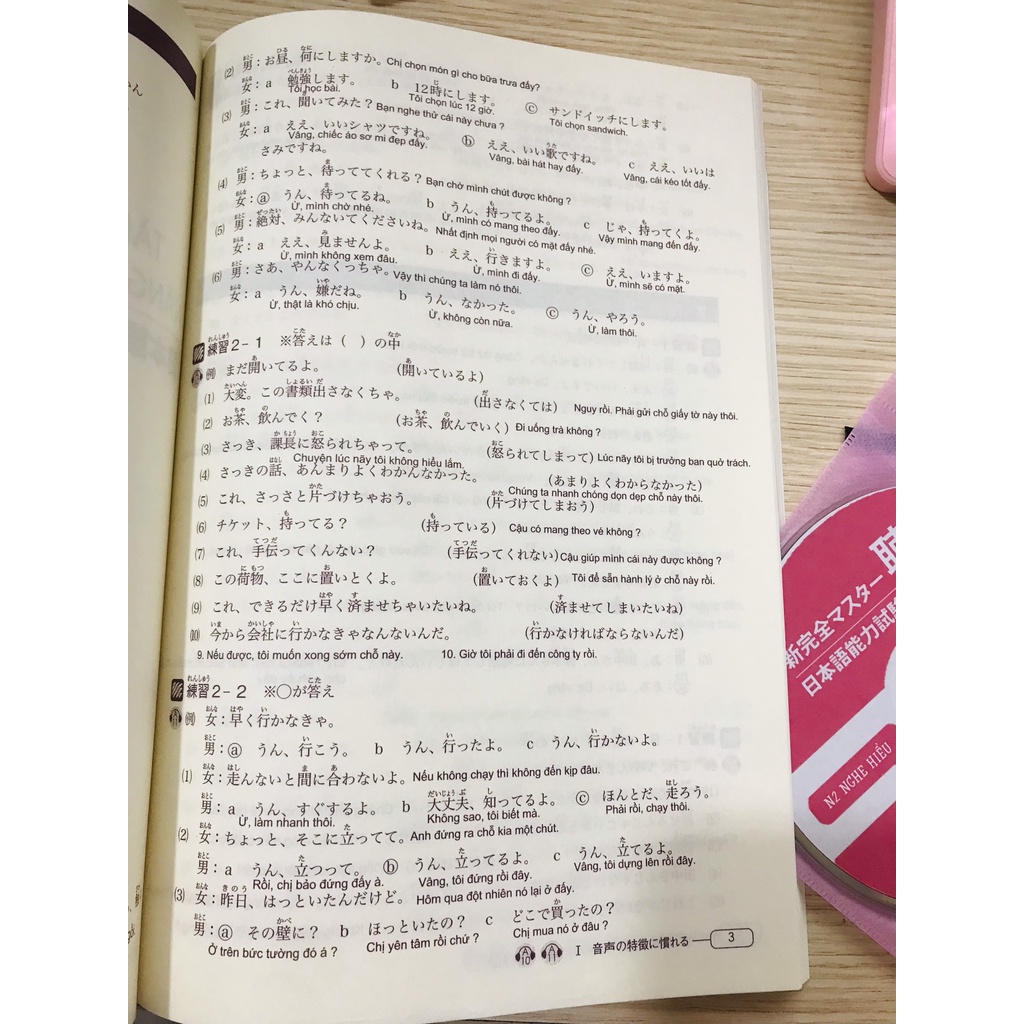 (2) 男：お昼、何にしますか。Chị chọn món gì cho bữa trưa đấy?
女：a 勉強します。 b 12時にします。 ⓒ サンドイッチにします。
Tôi học bài. Tôi chọn lúc 12 giờ. Tôi chọn sandwich.
(3) 男：これ、聞いてみた？ Bạn nghe thử cái này chưa ?
女：a ええ、いいシャツですね。 ⓑ ええ、いい歌ですね。 c ええ、いいは
Vâng, chiếc áo sơ mi đẹp đấy. Vâng, bài hát hay đấy. Vâng, cái kéo tốt đấy.
さみですね。
(4) 男：ちょっと、待っててくれる？ Bạn chờ mình chút được không ?
女：ⓐ うん、待ってるね。 b うん、持ってるよ。 c じゃ、持ってくよ。
Ừ, mình chờ nhé. Ừ, mình có mang theo đấy. Vậy mình mang đến đấy.
(5) 男：絶対、みんないてくださいね。Nhất định mọi người có mặt đấy nhé.
女：a ええ、見ませんよ。 b ええ、行きますよ。 ⓒ ええ、いますよ。
Ừ, mình không xem đâu. Ừ, mình đi đấy. Ừ, mình sẽ có mặt.
(6) 男：さあ、やんなくっちゃ。Vậy thì chúng ta làm nó thôi.
女：a うん、嫌だね。 b うん、なかった。 ⓒ うん、やろう。
Ừ, thật là khó chịu. Ừ, không còn nữa. Ừ, làm thôi.
練習2-1 ※答えは（ ）の中
(例) まだ開いてるよ。 (開いているよ)
(1) 大変。この書類出さなくちゃ。 (出さなくては) Nguy rồi. Phải gửi chỗ giấy tờ này thôi.
(2) お茶、飲んでく？ (お茶、飲んでいく) Đi uống trà không ?
(3) さっき、課長に怒られちゃって。 (怒られてしまって) Lúc nãy tôi bị trưởng ban quở trách.
Chuyện lúc nãy tôi không hiểu lắm.
(4) さっきの話、あんまりよくわかんなかった。 (あまりよくわからなかった)
Chúng ta nhanh chóng dọn dẹp chỗ này thôi.
(5) これ、さっさと片づけちゃおう。 (片づけてしまおう)
(6) チケット、持ってる？ (持っている) Cậu có mang theo vé không ?
(7) これ、手伝ってくんない？ (手伝ってくれない) Cậu giúp mình cái này được không ?
(8) この荷物、ここに置いとくよ。 (置いておくよ) Tôi để sẵn hành lý ở chỗ này rồi.
(9) これ、できるだけ早く済ませちゃいたいね。 (済ませてしまいたいね)
(10) 今から会社に行かなきゃなんないんだ。 (行かなければならないんだ)
9. Nếu được, tôi muốn xong sớm chỗ này. 10. Giờ tôi phải đi đến công ty rồi.
練習2-2 ※○が答え
(例) 女：早く行かなきゃ。
男：ⓐ うん、行こう。 b うん、行ったよ。 c うん、行かないよ。
(1) 女：走んないと間に合わないよ。Nếu không chạy thì không đến kịp đâu.
男：a うん、すぐするよ。 b 大丈夫、知ってるよ。 ⓒ ほんとだ、走ろう。
Ừ, làm nhanh thôi. Không sao, tôi biết mà. Phải rồi, chạy thôi.
(2) 女：ちょっと、そこに立ってて。Anh đứng ra chỗ kia một chút.
男：a うん、立つって。 ⓑ うん、立ってるよ。 c うん、立てるよ。
Rồi, chị bảo đứng đấy à. Vâng, tôi đứng rồi đây. Vâng, tôi dựng lên rồi đây.
(3) 女：昨日、はっといたんだけど。Hôm qua đột nhiên nó lại ở đấy.
男：ⓐ その壁に？ b ほっといたの？ c どこで買ったの？
Ở trên bức tường đó á ? Chị yên tâm rồi chứ ? Chị mua nó ở đâu ?
A10 A11 I 音声の特徴に慣れる 3
新完全マスター 聴
日本語能力試験
N2 NGHE HIỂU